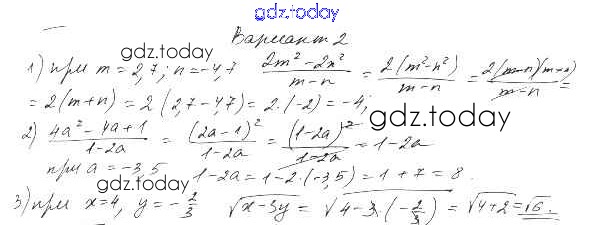 gdz.today
Вариант 2
gdz.today
1) при m = 2,7; n = -4,7 (2m² - 2n²)/(m-n) = 2(m²-n²)/(m-n) = 2(m-n)(m+n)/(m-n) =
= 2(m+n) = 2(2,7-4,7) = 2·(-2) = -4;
gdz.today
2) (4a² - 4a + 1)/(1-2a) = (2a-1)²/(1-2a) = (1-2a)²/(1-2a) = 1-2a
при a = -3,5 1-2a = 1-2·(-3,5) = 1+7 = 8.
gdz.today
3) при x=4, y = -2/3 √(x-3y) = √(4-3·(-2/3)) = √(4+2) = √6.